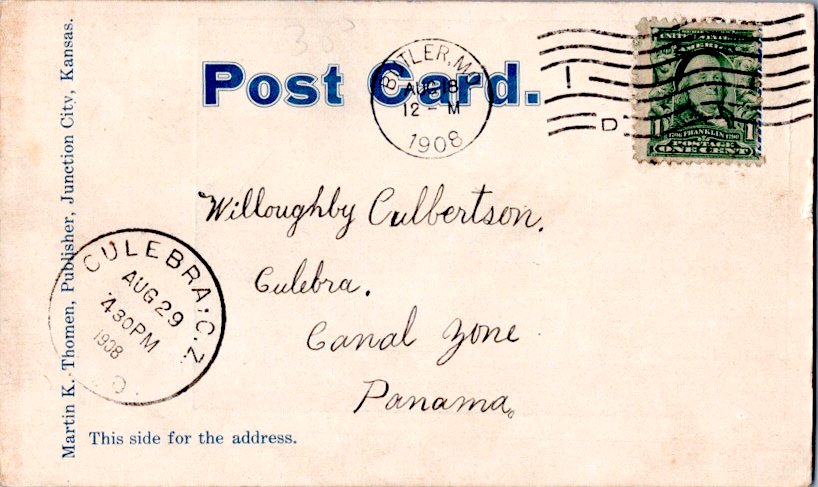 Post Card.
BUTLER, MO
AUG 18
12 - M
1908
1
D
UNITED STATES
AMERICA
1 1706 FRANKLIN 1790 1
POSTAGE
ONE CENT
Willoughby Culbertson.
Culebra.
Canal Zone
Panama.
CULEBRA, C. Z.
AUG 29
4 30 PM
1908
Martin K. Thomen, Publisher, Junction City, Kansas.
This side for the address.